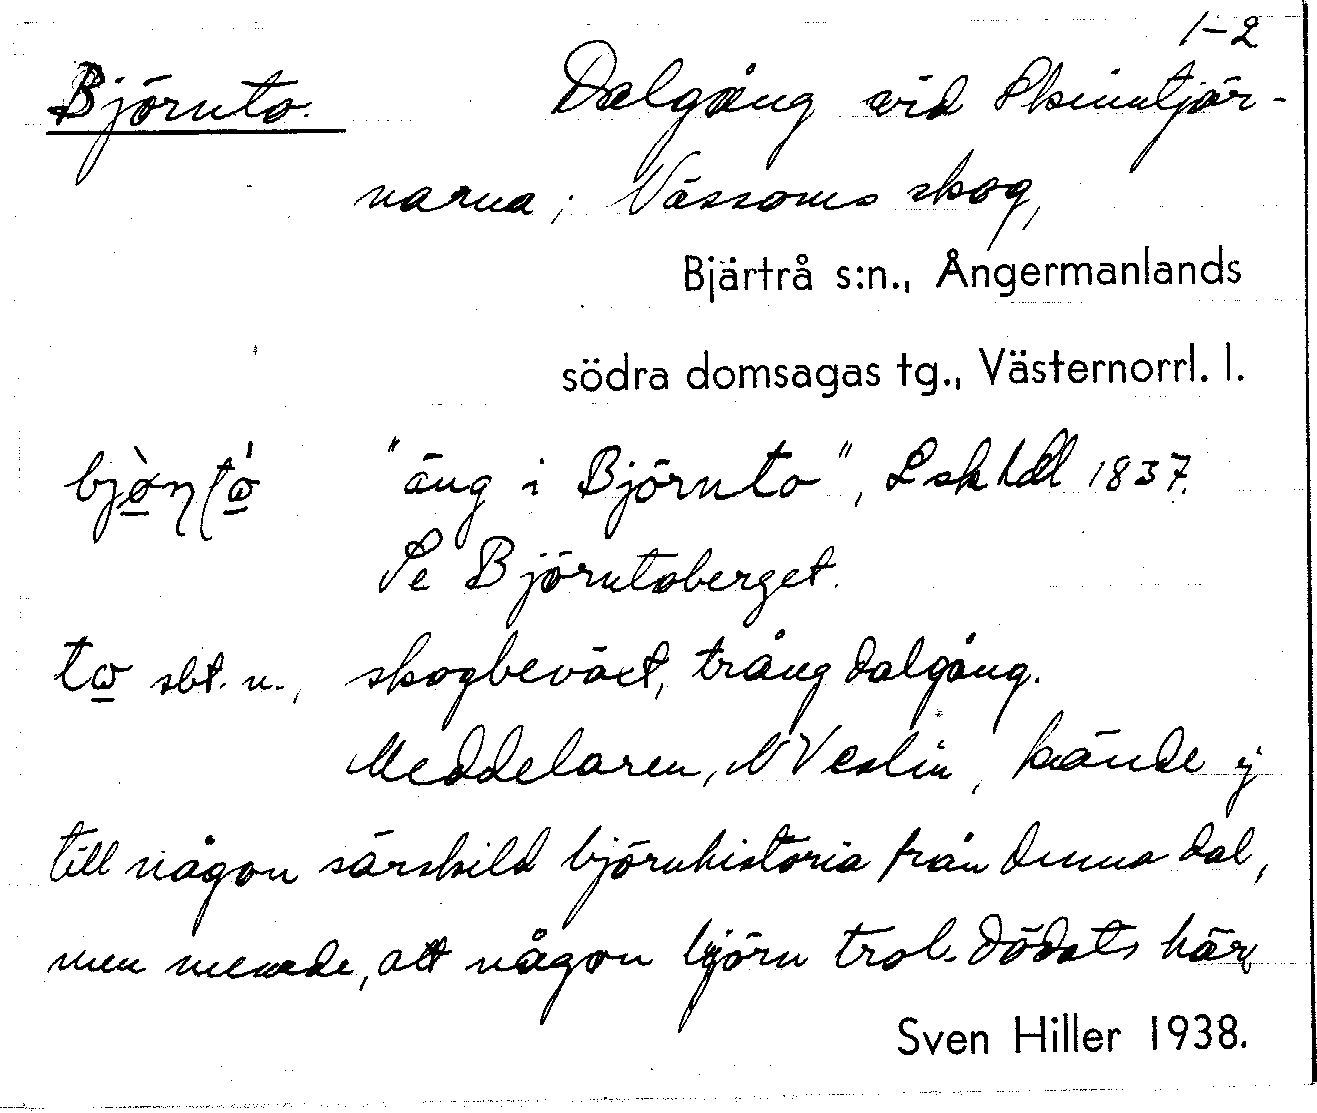 1-2
Björnto. Dalgång vid Skinntjär-
narna; Nässoms skog,
Bjärtrå s:n., Ångermanlands
södra domsagas tg., Västernorrl. l.
"äng i Björnto", Lsk Hdl 1837.
Se Björntoberget.
to sbt. n., skogbeväxt, trång dalgång.
Meddelaren, N Veslin, kände ej
till någon särskild björnhistoria från denna dal,
men menade, att någon björn trol. dödats här
Sven Hiller 1938.